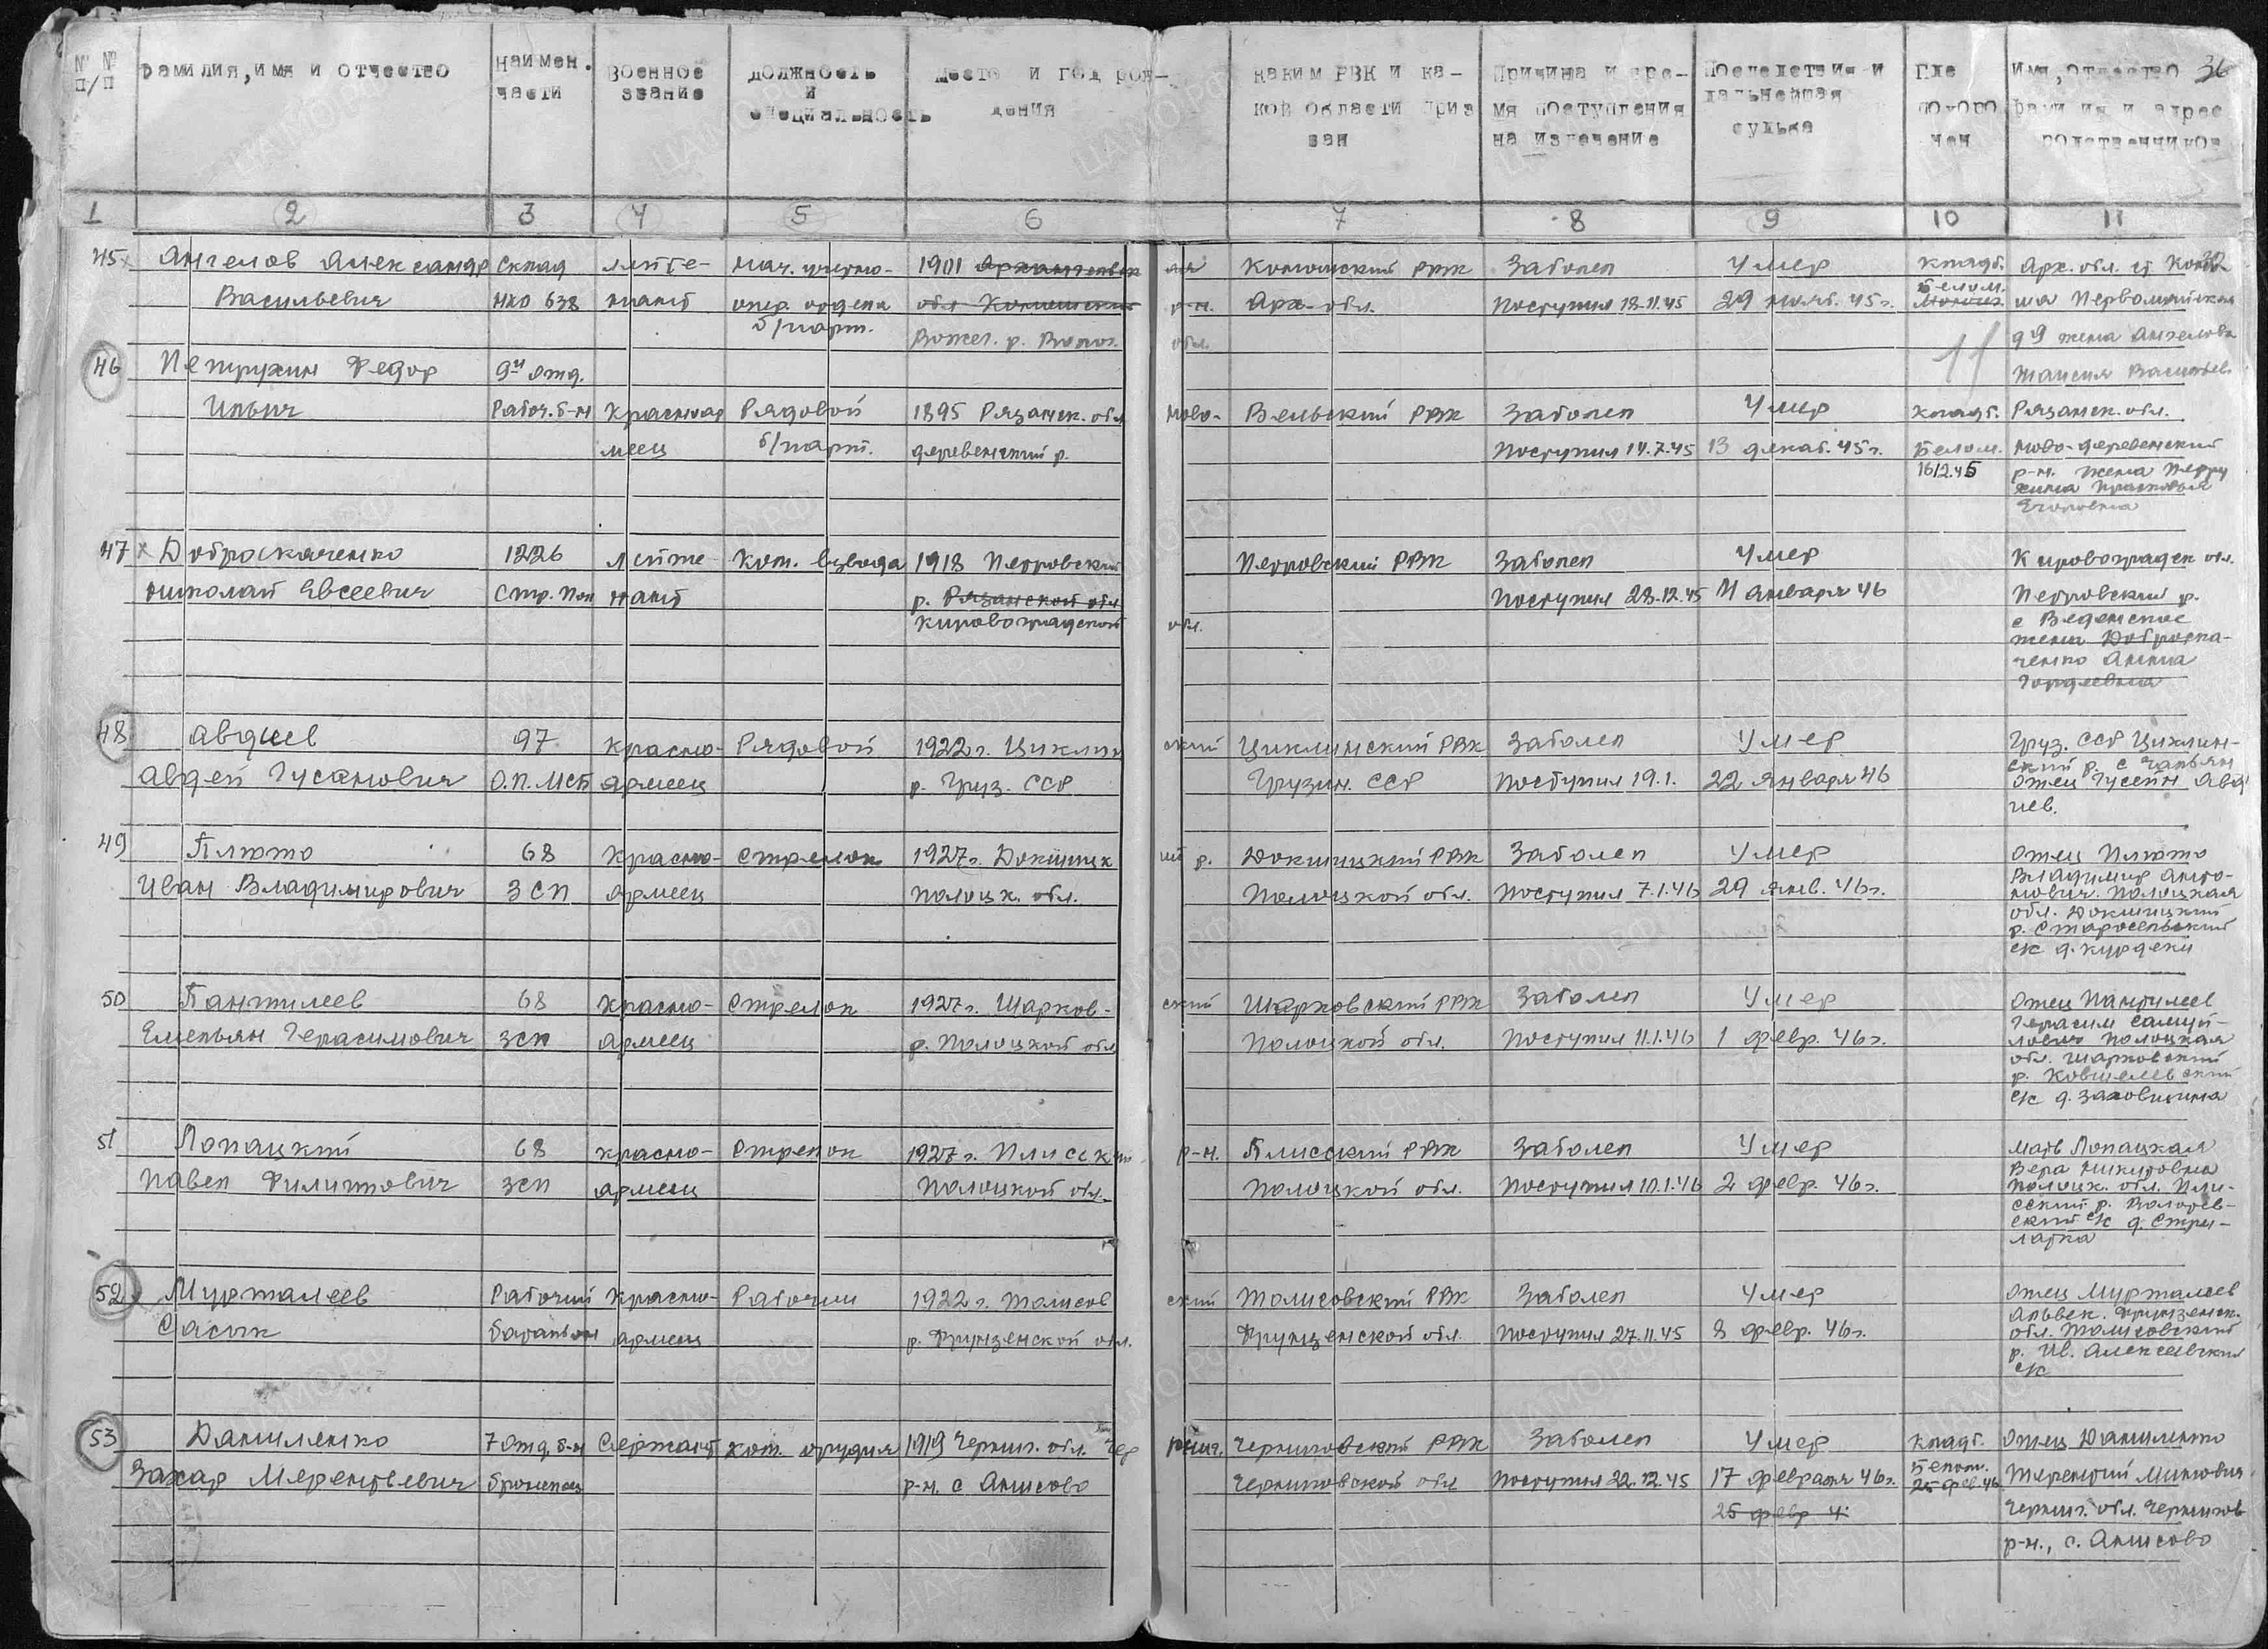 № № п/п Фамилия, имя и отчество Наимен. части Военное звание Должность и специальность Место и год рождения Каким РВК и какой области призван Причина и время поступления на излечение Последствия и дальнейшая судьба Где похоронен Имя, отчество фамилия и адрес родственников 36
1 2 3 4 5 6 7 8 9 10 11
45 Ангелов Александр Склад лейте- нач. учетно- 1901 Архангельск ая Коношский РВК Заболел Умер кладб. Арх. обл. ст. Коно
Васильевич НКО 638 нант опер. отдела обл Коношский р-н. Арх. обл. Поступил 18.11.45 29 нояб. 45 г. Белом. ша Первомайская
б/парт. Вожег. р. Волог. обл. д 9 жена Ангелова
Таисия Васильев.
46 Петрухин Федор 9й отд.
Ильич Рабоч. б-н Красноар Рядовой 1895 Рязанск. обл Ново- Вельский РВК Заболел Умер кладб. Рязанск. обл.
меец б/парт. деревенский р. Поступил 14.7.45 13 декаб. 45 г. Белом. Ново-деревенский
16/2.45 р-н. жена Петру
хина Прасковья
Егоровна
47 Доброскаченко 1226 Лейте- Ком. взвода 1918 Петровский Петровский РВК Заболел Умер Кировоградск обл.
Николай Евсеевич Стр. Пол нант р. Рязанской обл Поступил 28.12.45 11 января 46 Петровский р.
Кировоградской обл. с Веденское
жена Доброска-
ченко Анна
Гордеевна
48 Авдиев 97 Красно- Рядовой 1922 г. Циклин ский Циклинский РВК Заболел Умер Груз. ССР Циклин-
Авдей Гусанович О.П. МСБ армеец р. Груз. ССР Грузин. ССР Поступил 19.1. 22 января 46 ский р. с
отец Гусейн Авд
иев.
49 Плюто 68 Красно- Стрелок 1927 г. Докшицк ий р. Докшицкий РВК Заболел Умер Отец Плюто
Иван Владимирович ЗСП армеец Полоцк. обл. Полоцкой обл. Поступил 7.1.46 29 янв. 46 г. Владимир Анто-
нович. Полоцкая
обл. Докшицкий
р. Старосельский
с/с д. Курдеки
50 Пантилеев 68 Красно- Стрелок 1927 г. Шарков- ский Шарковский РВК Заболел Умер Отец Пантилеев
Емельян Герасимович ЗСП армеец р. Полоцкой обл Полоцкой обл. Поступил 11.1.46 1 февр. 46 г. Герасим Самуй-
лович Полоцкая
обл. Шарковский
р. Ковшелевский
с/с д. Заховщина
51 Лопацкий 68 Красно- Стрелок 1927 г. Плисский р-н. Плисский РВК Заболел Умер Мать Лопацкая
Павел Филиппович ЗСП армеец Полоцкой обл. Полоцкой обл. Поступил 10.1.46 2 февр. 46 г. Вера Никитовна
Полоцк. обл. Пли-
сский р. Волотев-
ский с/с д. Стри-
ларка
52 Мурталеев Рабочий Красно- Рабочий 1922 г. Толисов ский Толисовский РВК Заболел Умер Отец Мурталеев
Сасык батальон армеец р. Фрунзенской обл. Фрунзенской обл. Поступил 27.11.45 8 февр. 46 г. Альбек. Фрунзенск.
обл. Толисовский
р. Ив. Алексеевский
с/с
53 Даниленко 7 отд. б-н Сержант Ком. орудия 1919 Черниг. обл. Чер ниг. Черниговский РВК Заболел Умер кладб. Отец Даниленко
Захар Терентьевич бронепоез р-н. с Анисово Черниговской обл Поступил 22.12.45 17 февраля 46 г. Белом. Терентий Минович
25 фев. 46
25 февр 4 Черниг. обл. Чернигов
р-н., с. Анисово